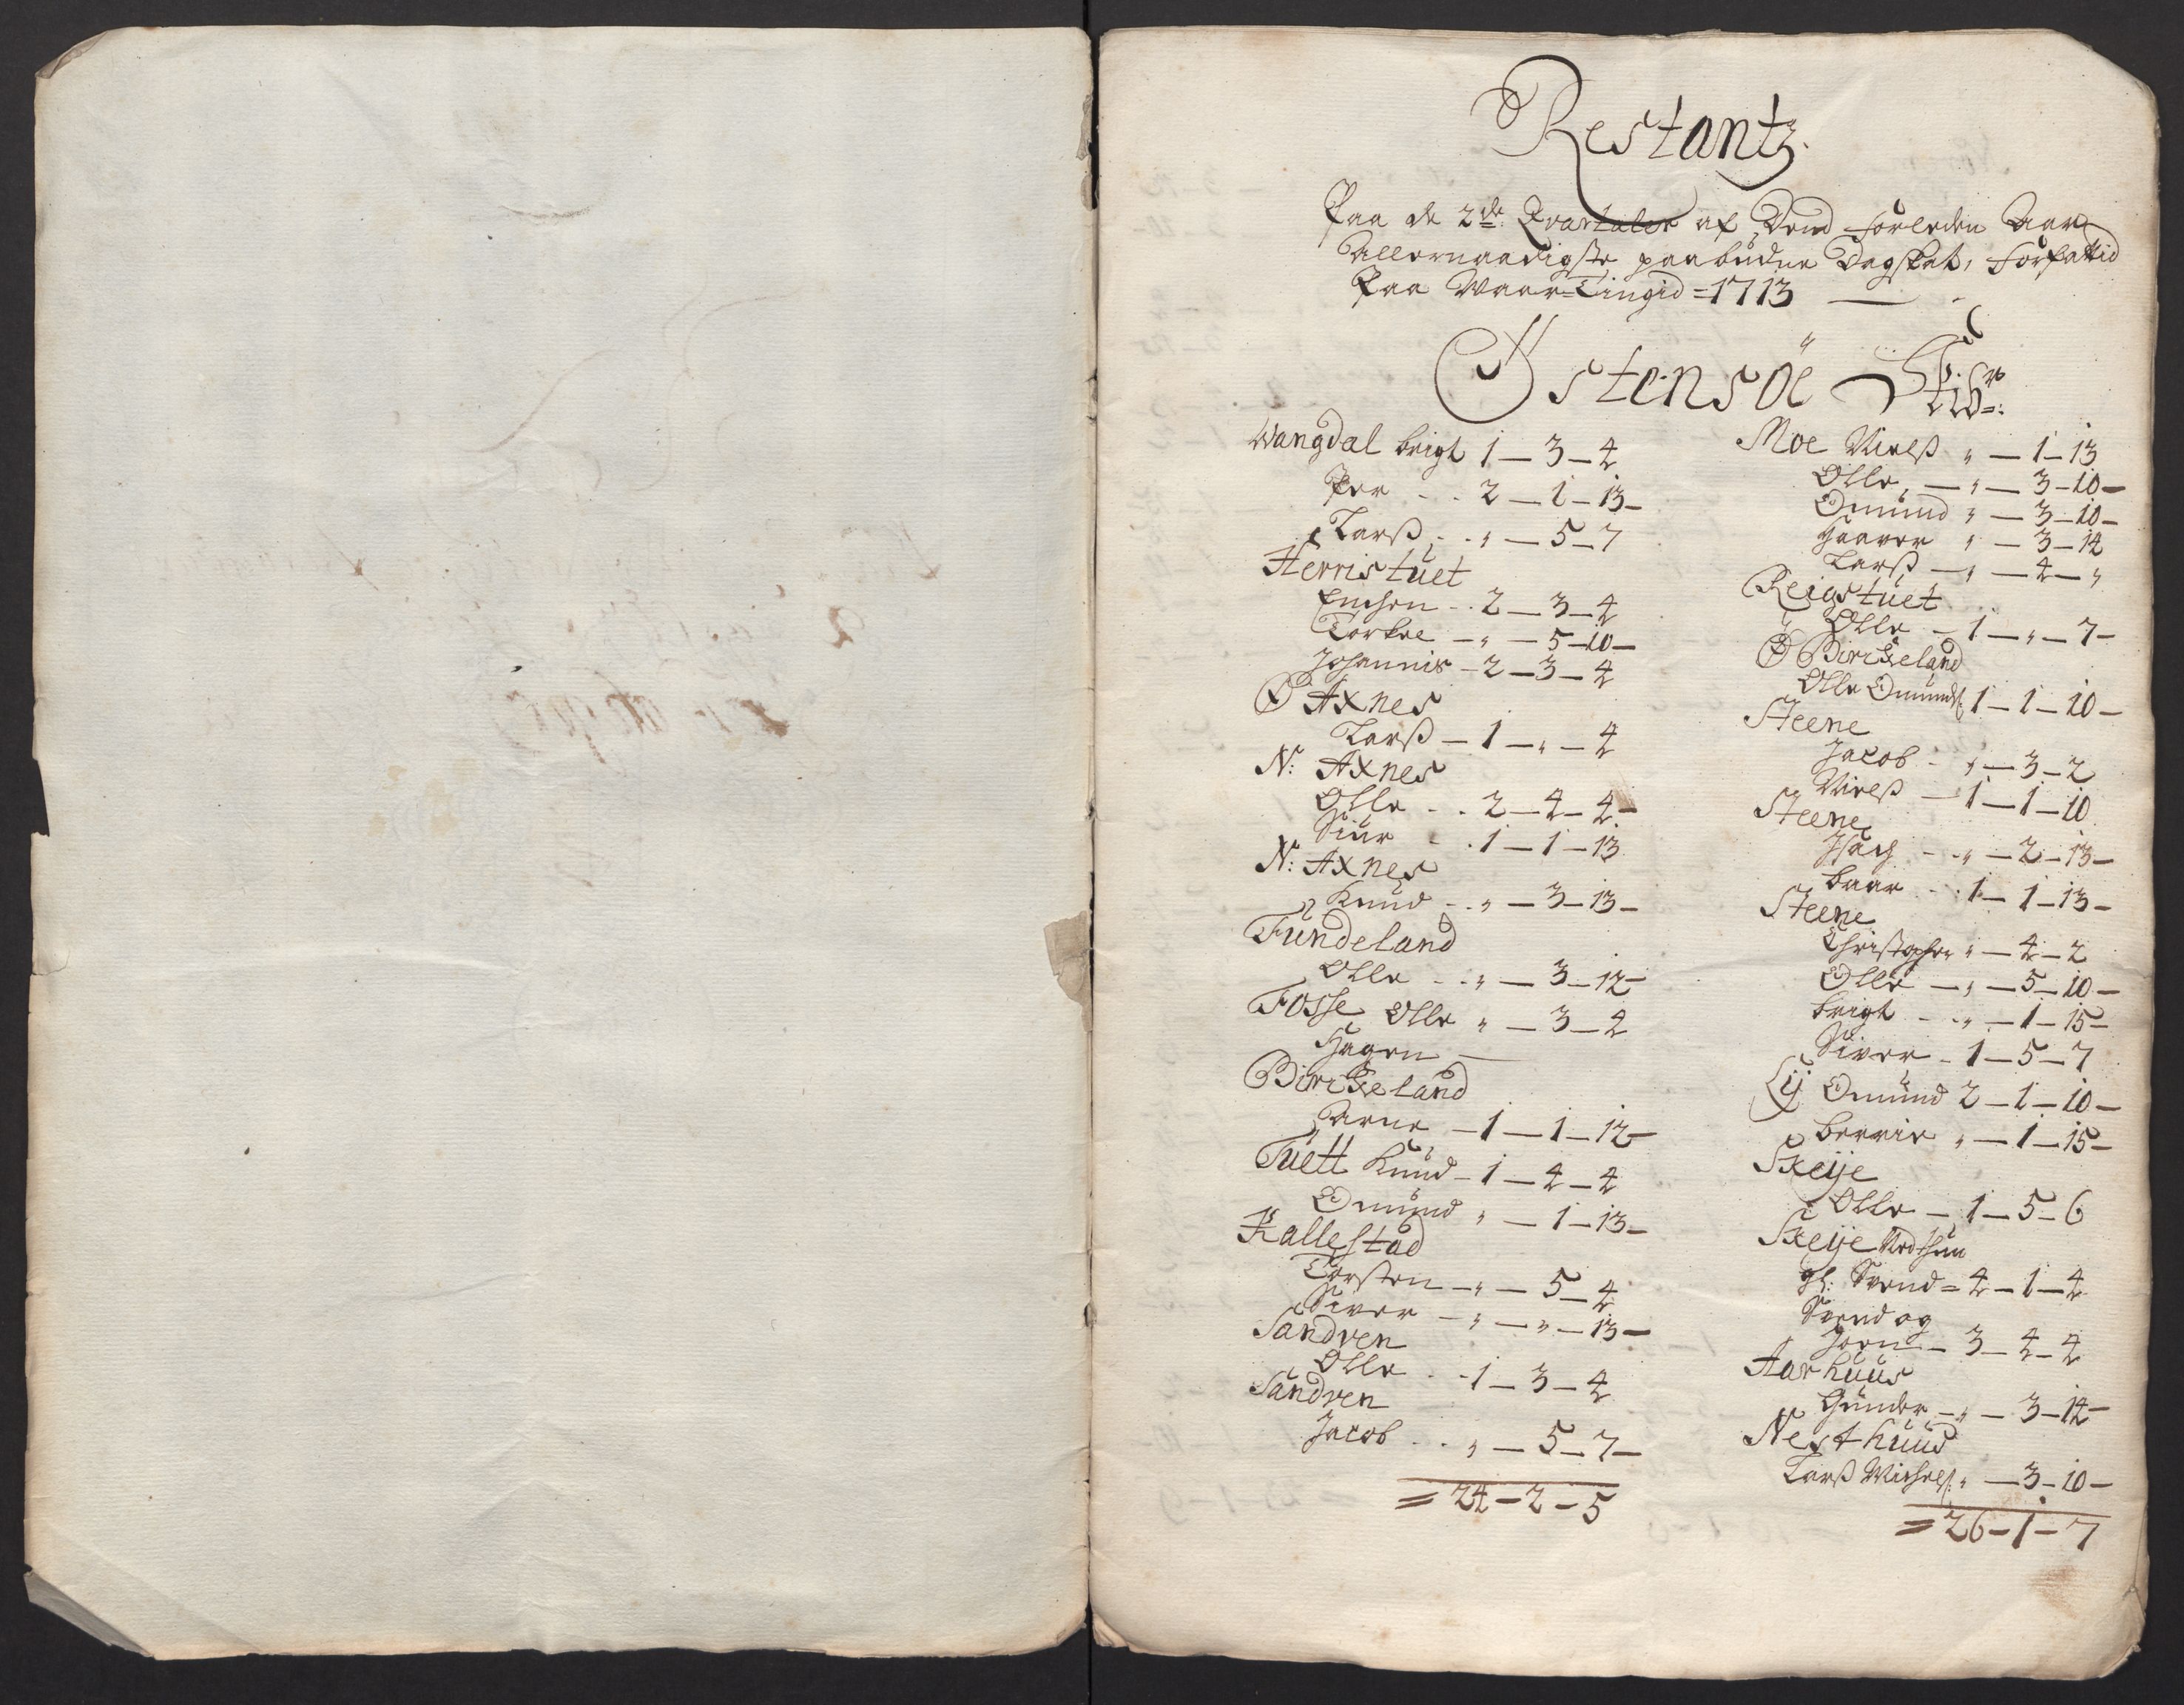 Restantz.
Paa de 2de Qvartaler af Dend forleden Aar
Allernaadigste paabudne Dagskat, forfattid
Paa Waar-Tingid = 1713
Østensöe Skibr:
Wangdal brigt 1 — 3 — 4
Per - - 2 — 1 — 13 —
Larß - - „ — 5 — 7
Herristuet
Torkel — „ — 5 — 10 —
Johannis — 2 — 3 — 4
Ø Axnes
Larß — 1 — „ — 4
N: Axnes
Olle - - 2 — 4 — 4 —
Siur - - 1 — 1 — 13
N: Axnes
Knud - - „ — 3 — 13 —
Fundeland
Olle - - „ — 3 — 12 —
Fosse Olle „ — 3 — 2
Hagen —
Birckeland
Arne — 1 — 1 — 12 —
Tuett Knud — 1 — 4 — 4
Omund „ — 1 — 13 —
Kallestad
Torsten — „ — 5 — 4
Siver — „ — „ — 13 —
Sandven
Olle - - 1 — 3 — 4
Sandven
Jacob - - „ — 5 — 7 —
= 24 — 2 — 5
Moe Nielß „ — 1 — 13
Olle, — „ — 3 — 10 —
Omund „ — 3 — 10 —
Haaver „ — 3 — 14
Larß — „ — 4 — „
Reigstuet
Olle — 1 — „ — 7 —
Ø Birckeland
Olle Omunds: 1 — 1 — 10 —
Steene
Jacob - „ — 3 — 2
Nielß — 1 — 1 — 10
Steene
Isach - - „ — 2 — 13 —
baar - - 1 — 1 — 13 —
Steene
Christopher „ — 4 — 2
Olle — „ — 5 — 10 —
brigt - - „ — 1 — 15 —
Siver - 1 — 5 — 7
Lij Omund 2 — 1 — 10 —
berrie „ — 1 — 15 —
Skeije
Olle — 1 — 5 — 6
Skeije Nedstun
gl: Svend = 4 — 1 — 4
Svend og
Joen — 3 — 4 — 4
Aarhuus
Gunder — „ — 3 — 14 —
Nesthuus
Larß Michels: „ — 3 — 10 —
= 26 — 1 — 7